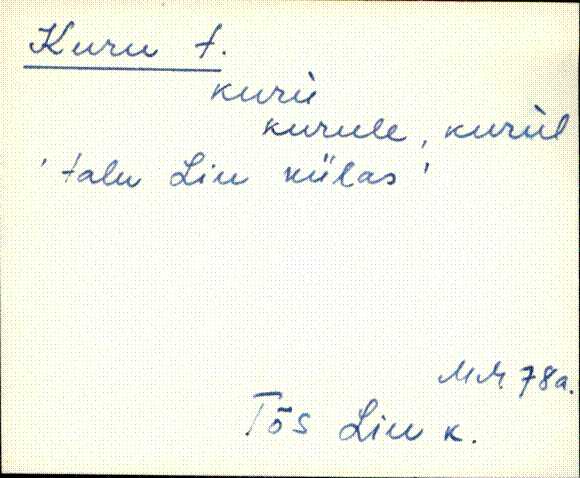 Kuru t.
kurù
kurule, kurùl
'talu Liu külas'
M.M. 78a.
Tõs Liu k.